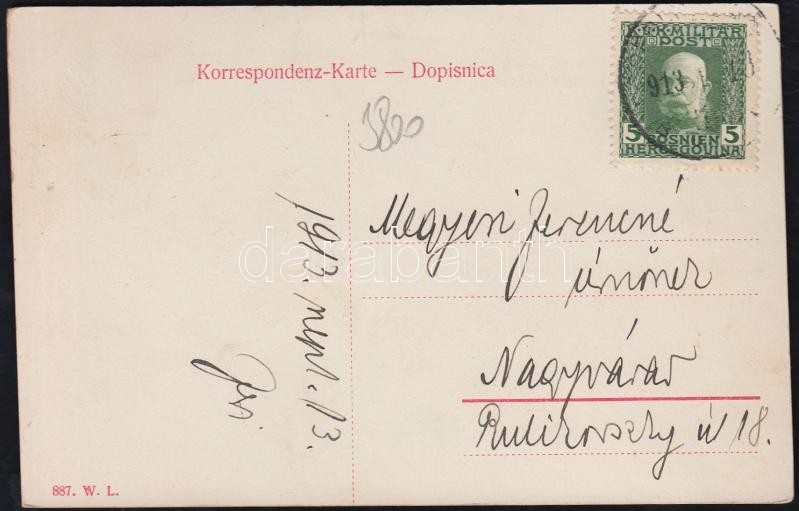 Korrespondenz-Karte — Dopisnica
K.u.K. MILITÄR
POST
5 BOSNIEN 5
HERCEGOVINA
913
3800
Megyesi Ferencné
úrnőnek
Nagyvárad
Rulikovszky út 18.
1913. sept. 13.
887. W. L.
darabanth